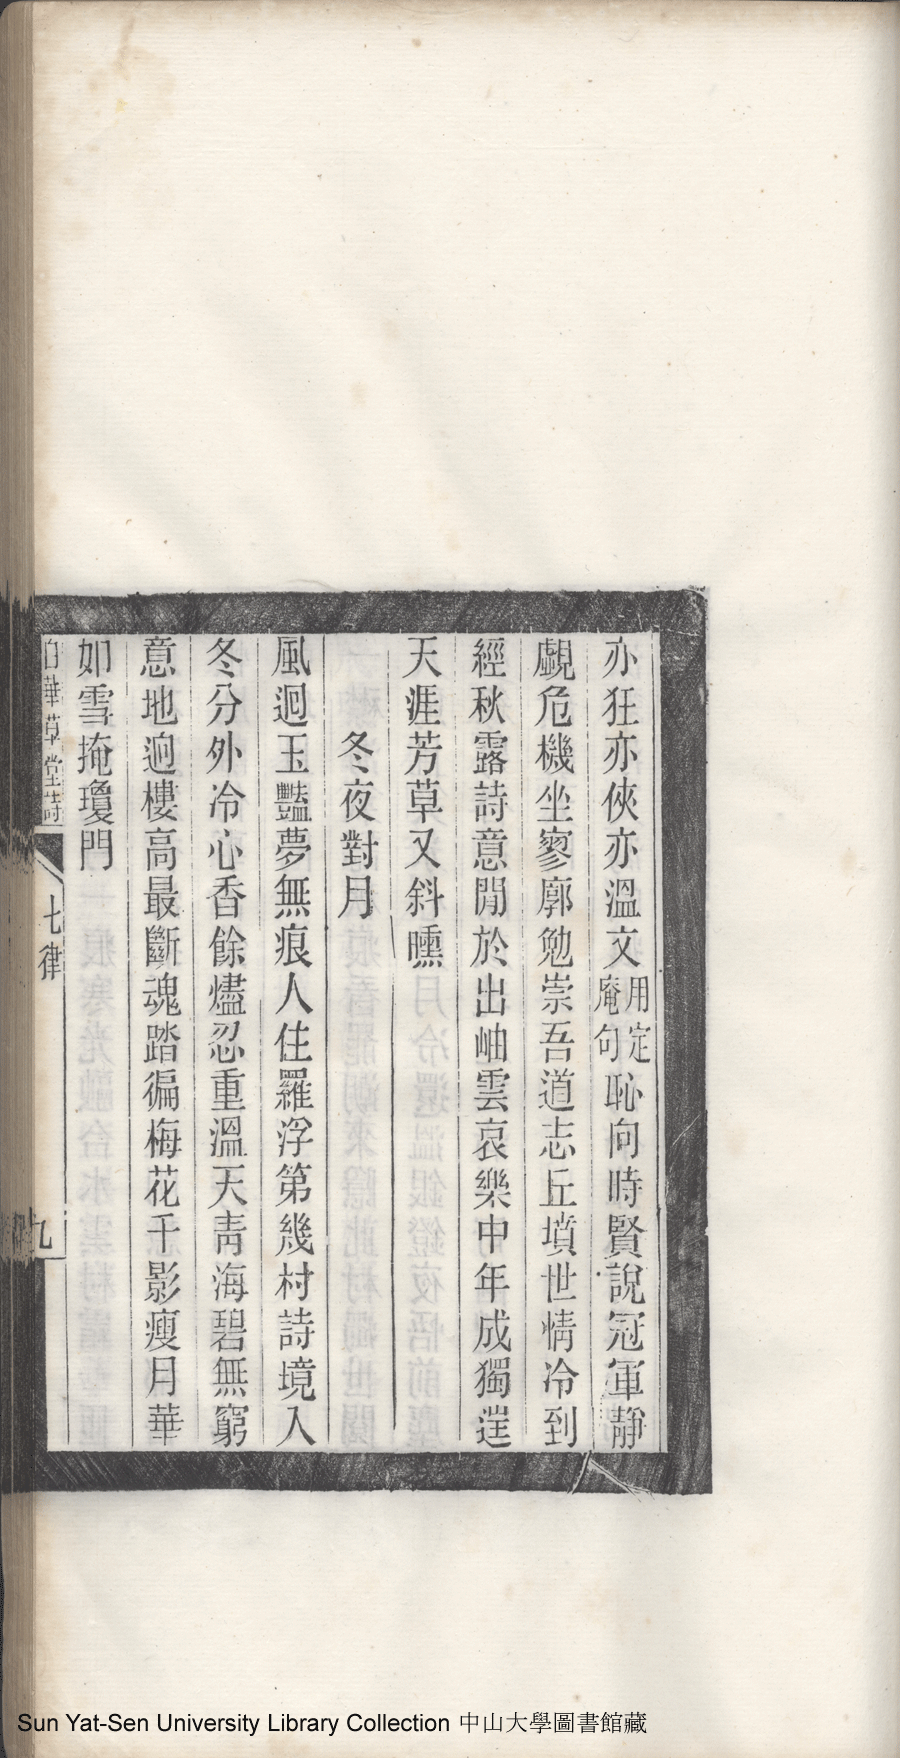 亦狂亦俠亦溫文用定庵句恥向時賢說冠軍靜
覷危機坐寥廓勉崇吾道志丘墳世情冷到
經秋露詩意閒於出岫雲哀樂中年成獨迋
天涯芳草又斜曛
冬夜對月
風迴玉豔夢無痕人住羅浮第幾村詩境入
冬分外冷心香餘燼忍重溫天青海碧無窮
意地迥樓高最斷魂踏徧梅花千影瘦月華
如雪掩瓊門
白華草堂詩
七律
九
Sun Yat-Sen University Library Collection 中山大學圖書館藏